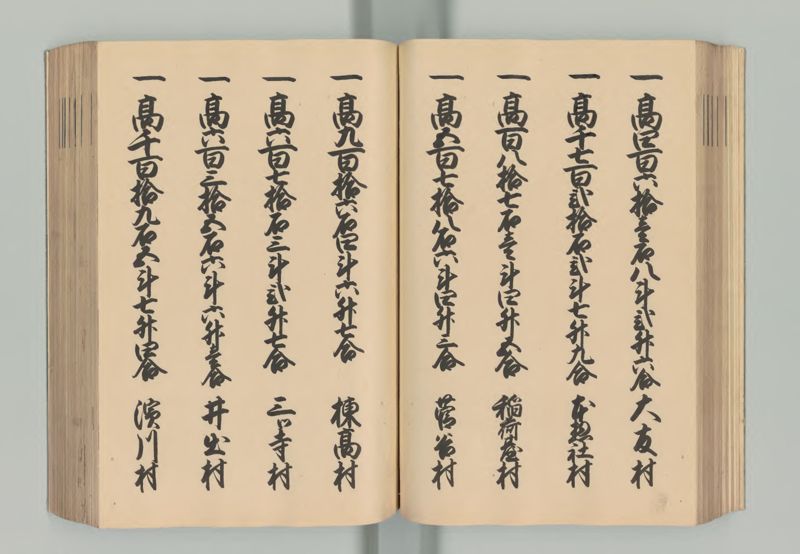 一 高四百六拾壱石八斗弐升六合 大友村
一 高千七百弐拾石弐斗七升九合 惣社村
一 高百八拾七石壱斗四升五合 稲荷台村
一 高五百七拾八石六斗四升三合 菅谷村
一 高九百拾六石四斗六升七合 棟高村
一 高六百七拾石三斗弐升七合 三ツ寺村
一 高六百三拾五石六斗六升壱合 井出村
一 高千百拾九石五斗七升四合 濱川村